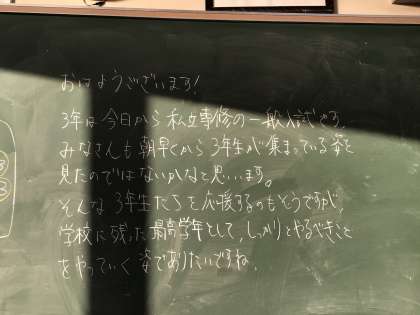 おはようございます!
3年は今日から私立専修の一般入試です。
みなさんも朝早くから3年生が集まっている姿を
見たのではないかなと思います。
そんな3年生たちを応援するのもそうですが、
学校に残った最高学年として、しっかりとやるべきこと
をやっていく姿でありたいですね。